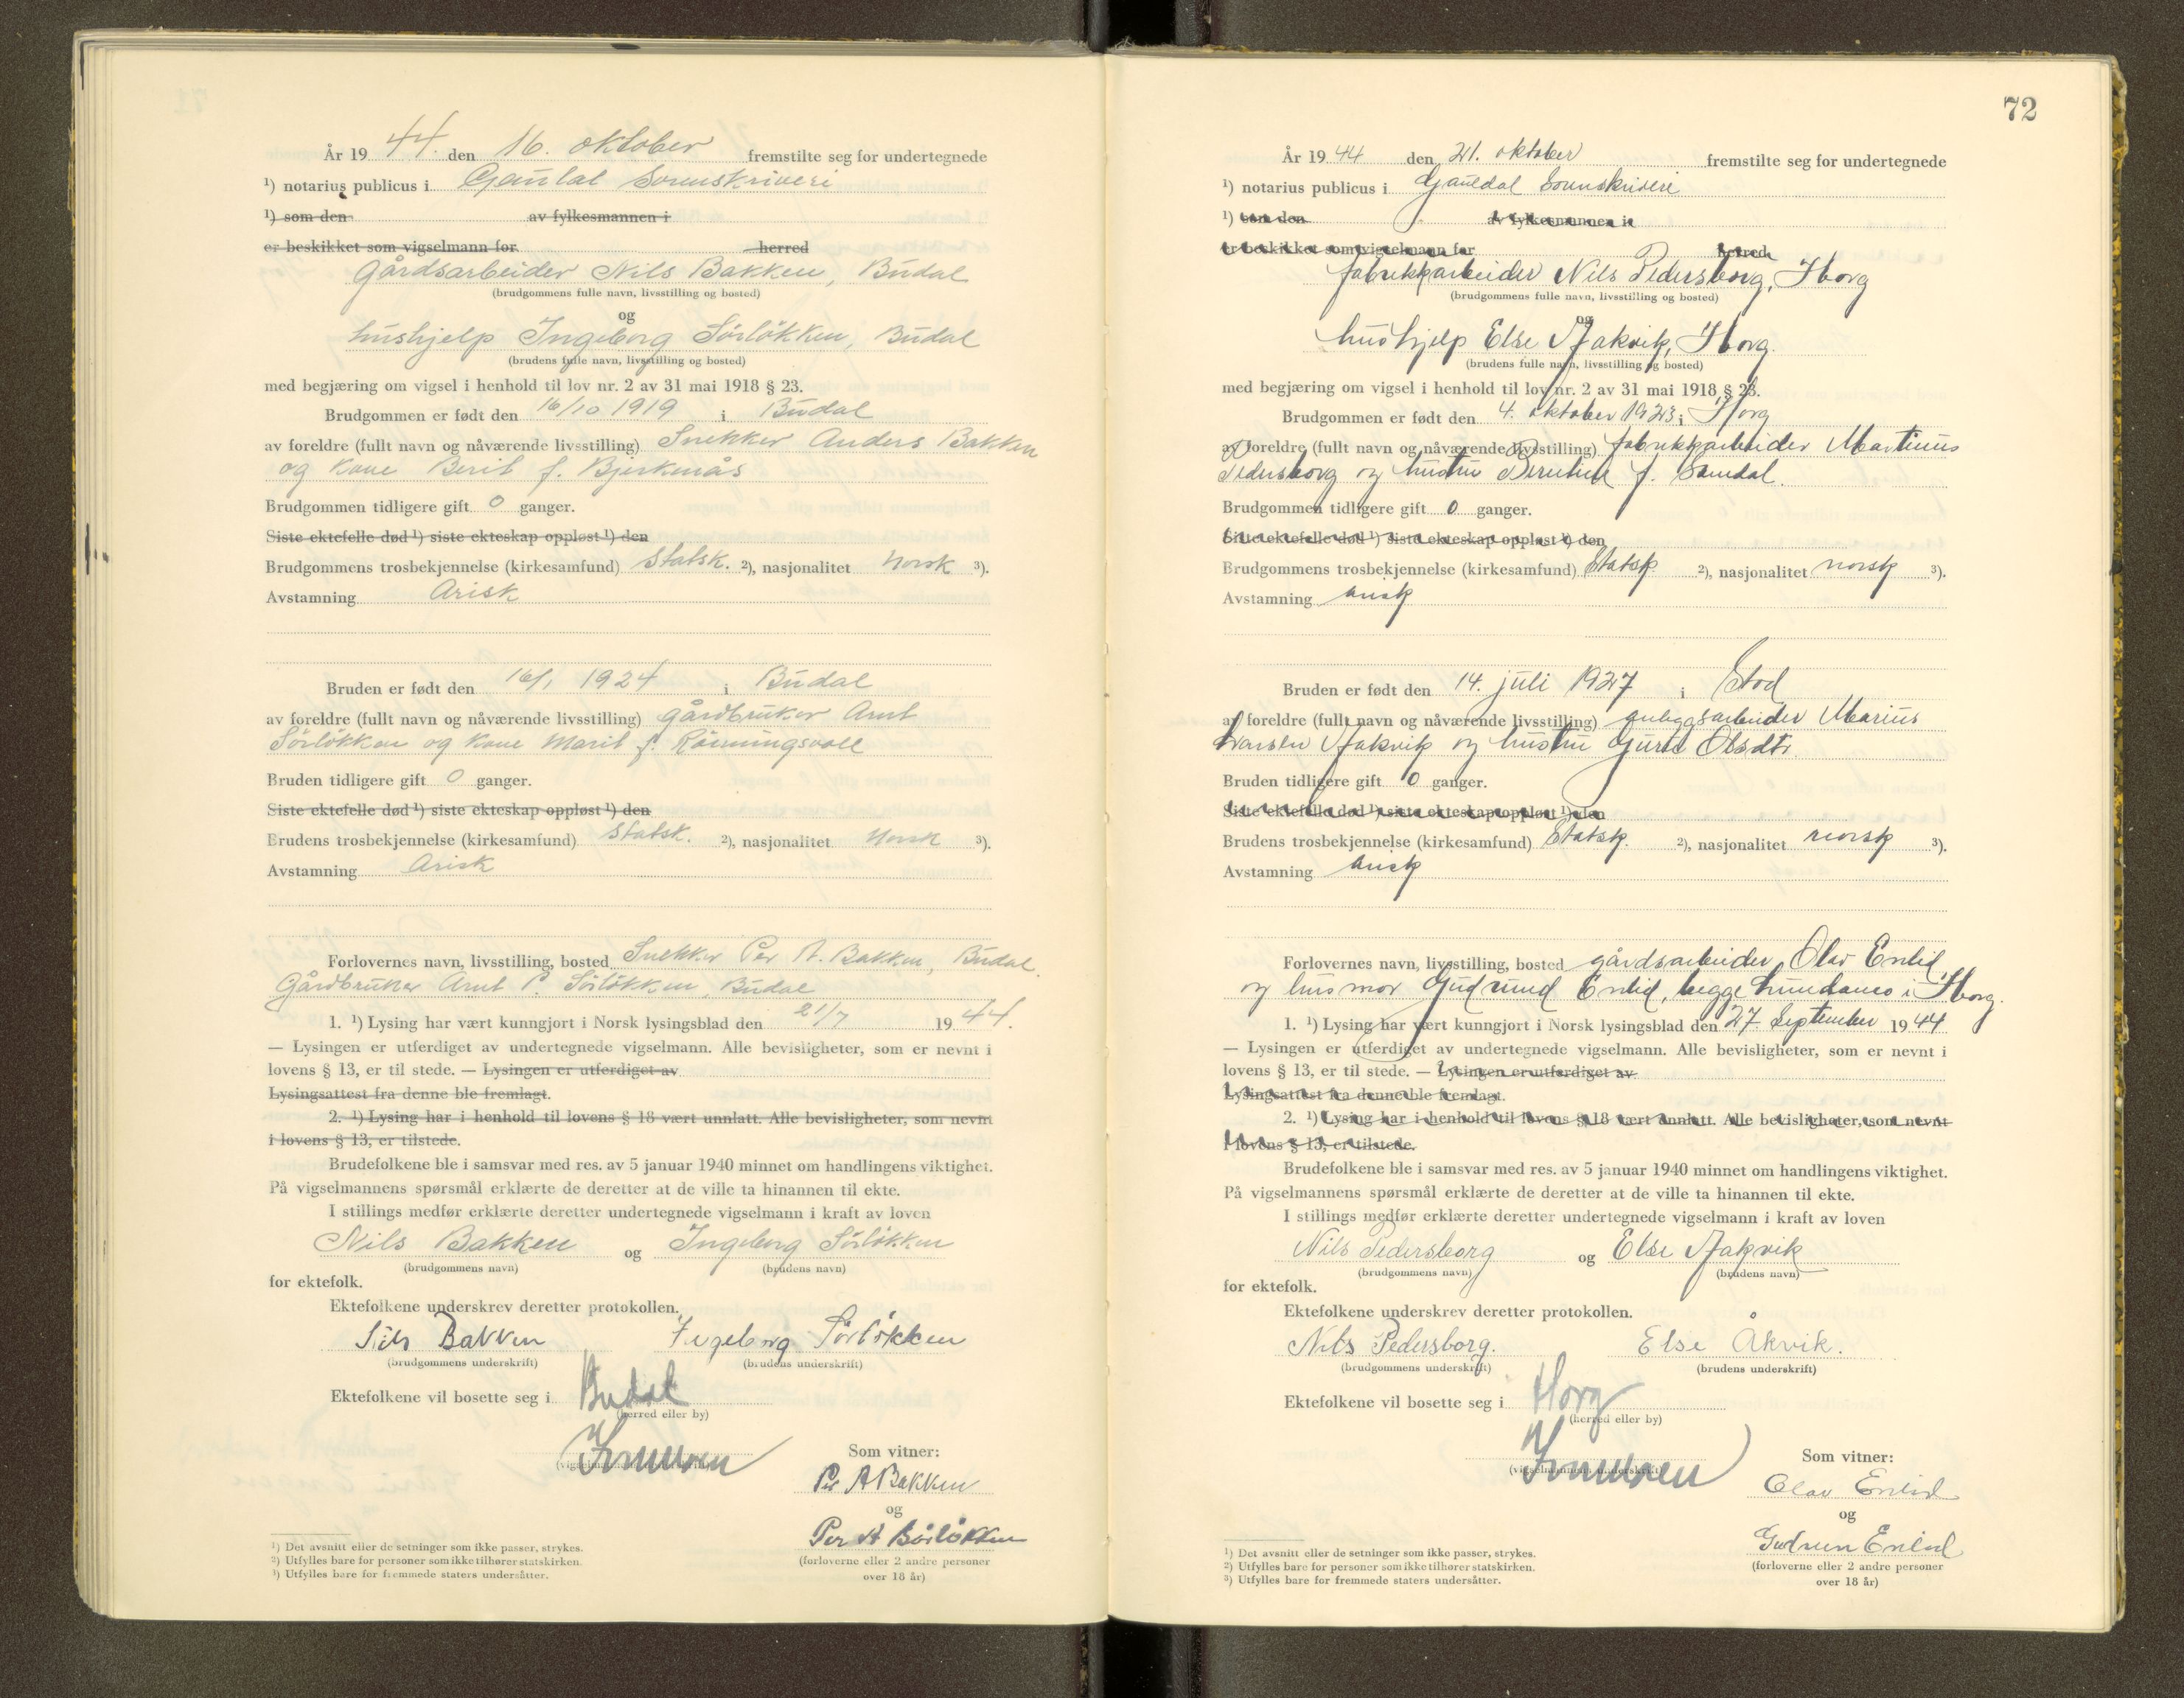 År 19 44. den 16. oktober fremstilte seg for undertegnede
¹) notarius publicus i Gauldal Sorenskriveri
¹) som den av fylkesmannen i
er beskikket som vigselmann for herred
Gårdsarbeider Nils Bakken, Budal
(brudgommens fulle navn, livsstilling og bosted)
og
hushjelp Ingeborg Sörlökken, Budal
(brudens fulle navn, livsstilling og bosted)
med begjæring om vigsel i henhold til lov nr. 2 av 31 mai 1918 § 23.
Brudgommen er født den 16/10 1919 i Budal
av foreldre (fullt navn og nåværende livsstilling) Snekker Anders Bakken
og kone Berit f. Bjerknås
Brudgommen tidligere gift 0 ganger.
Siste ektefelle død ¹) siste ekteskap oppløst ¹) den
Brudgommens trosbekjennelse (kirkesamfund) Statsk. ²), nasjonalitet Norsk ³).
Avstamning Arisk
Bruden er født den 16/1 1924 i Budal
av foreldre (fullt navn og nåværende livsstilling) gårdbruker Arnt
Sörlökken og kone Marit f. Rönningsvoll
Bruden tidligere gift 0 ganger.
Siste ektefelle død ¹) siste ekteskap oppløst ¹) den
Brudens trosbekjennelse (kirkesamfund) Statsk. ²), nasjonalitet Norsk ³).
Avstamning Arisk
Forlovernes navn, livsstilling, bosted Snekker Per A. Bakken, Budal.
Gårdbruker Arnt P. Sörlökken, Budal
1. ¹) Lysing har vært kunngjort i Norsk lysingsblad den 21/7 19 44.
— Lysingen er utferdiget av undertegnede vigselmann. Alle bevisligheter, som er nevnt i
lovens § 13, er til stede. — Lysingen er utferdiget av
Lysingsattest fra denne ble fremlagt.
2. ¹) Lysing har i henhold til lovens § 18 vært unnlatt. Alle bevisligheter, som nevnt
i lovens § 13, er tilstede.
Brudefolkene ble i samsvar med res. av 5 januar 1940 minnet om handlingens viktighet.
På vigselmannens spørsmål erklærte de deretter at de ville ta hinannen til ekte.
I stillings medfør erklærte deretter undertegnede vigselmann i kraft av loven
Nils Bakken og Ingeborg Sörlökken
(brudgommens navn) (brudens navn)
for ektefolk.
Ektefolkene underskrev deretter protokollen.
Nils Bakken Ingeborg Sörlökken
(brudgommens underskrift) (brudens underskrift)
Ektefolkene vil bosette seg i Budal
(herred eller by)
Som vitner:
Per A Bakken
og
Per A Sörlökken
(forloverne eller 2 andre personer
over 18 år)
¹) Det avsnitt eller de setninger som ikke passer, strykes.
²) Utfylles bare for personer som ikke tilhører statskirken.
³) Utfylles bare for fremmede staters undersåtter.
72
År 19 44 den 21. oktober fremstilte seg for undertegnede
¹) notarius publicus i Gauldal Sorenskriveri
¹) som den av fylkesmannen i
er beskikket som vigselmann for herred
fabrikkarbeider Nils Pedersborg, Horg
(brudgommens fulle navn, livsstilling og bosted)
og
hushjelp Else Aakvik, Horg.
(brudens fulle navn, livsstilling og bosted)
med begjæring om vigsel i henhold til lov nr. 2 av 31 mai 1918 § 23.
Brudgommen er født den 4. oktober 1923 i Horg
av foreldre (fullt navn og nåværende livsstilling) fabrikkarbeider Martinus
Pedersborg og hustru Berntine f. Samdal.
Brudgommen tidligere gift 0 ganger.
Siste ektefelle død ¹) siste ekteskap oppløst ¹) den
Brudgommens trosbekjennelse (kirkesamfund) Statsk. ²), nasjonalitet norsk ³).
Avstamning arisk
Bruden er født den 14. juli 1927 i Stod
av foreldre (fullt navn og nåværende livsstilling) anleggsarbeider Marius
Larsen Aakvik og hustru Gurid Olsdtr.
Bruden tidligere gift 0 ganger.
Siste ektefelle død ¹) siste ekteskap oppløst ¹) den
Brudens trosbekjennelse (kirkesamfund) Statsk. ²), nasjonalitet norsk ³).
Avstamning arisk
Forlovernes navn, livsstilling, bosted gårdsarbeider Olav Enlid
og husmor Gudrund Enlid, begge Lundamo i Horg.
1. ¹) Lysing har vært kunngjort i Norsk lysingsblad den 27 September 19 44
— Lysingen er utferdiget av undertegnede vigselmann. Alle bevisligheter, som er nevnt i
lovens § 13, er til stede. — Lysingen er utferdiget av
Lysingsattest fra denne ble fremlagt.
2. ¹) Lysing har i henhold til lovens § 18 vært unnlatt. Alle bevisligheter, som nevnt
i lovens § 13, er tilstede.
Brudefolkene ble i samsvar med res. av 5 januar 1940 minnet om handlingens viktighet.
På vigselmannens spørsmål erklærte de deretter at de ville ta hinannen til ekte.
I stillings medfør erklærte deretter undertegnede vigselmann i kraft av loven
Nils Pedersborg og Else Aakvik
(brudgommens navn) (brudens navn)
for ektefolk.
Ektefolkene underskrev deretter protokollen.
Nils Pedersborg. Else Åkvik.
(brudgommens underskrift) (brudens underskrift)
Ektefolkene vil bosette seg i Horg
(herred eller by)
Som vitner:
Olav Enlid
og
Gudrun Enlid
(forloverne eller 2 andre personer
over 18 år)
¹) Det avsnitt eller de setninger som ikke passer, strykes.
²) Utfylles bare for personer som ikke tilhører statskirken.
³) Utfylles bare for fremmede staters undersåtter.